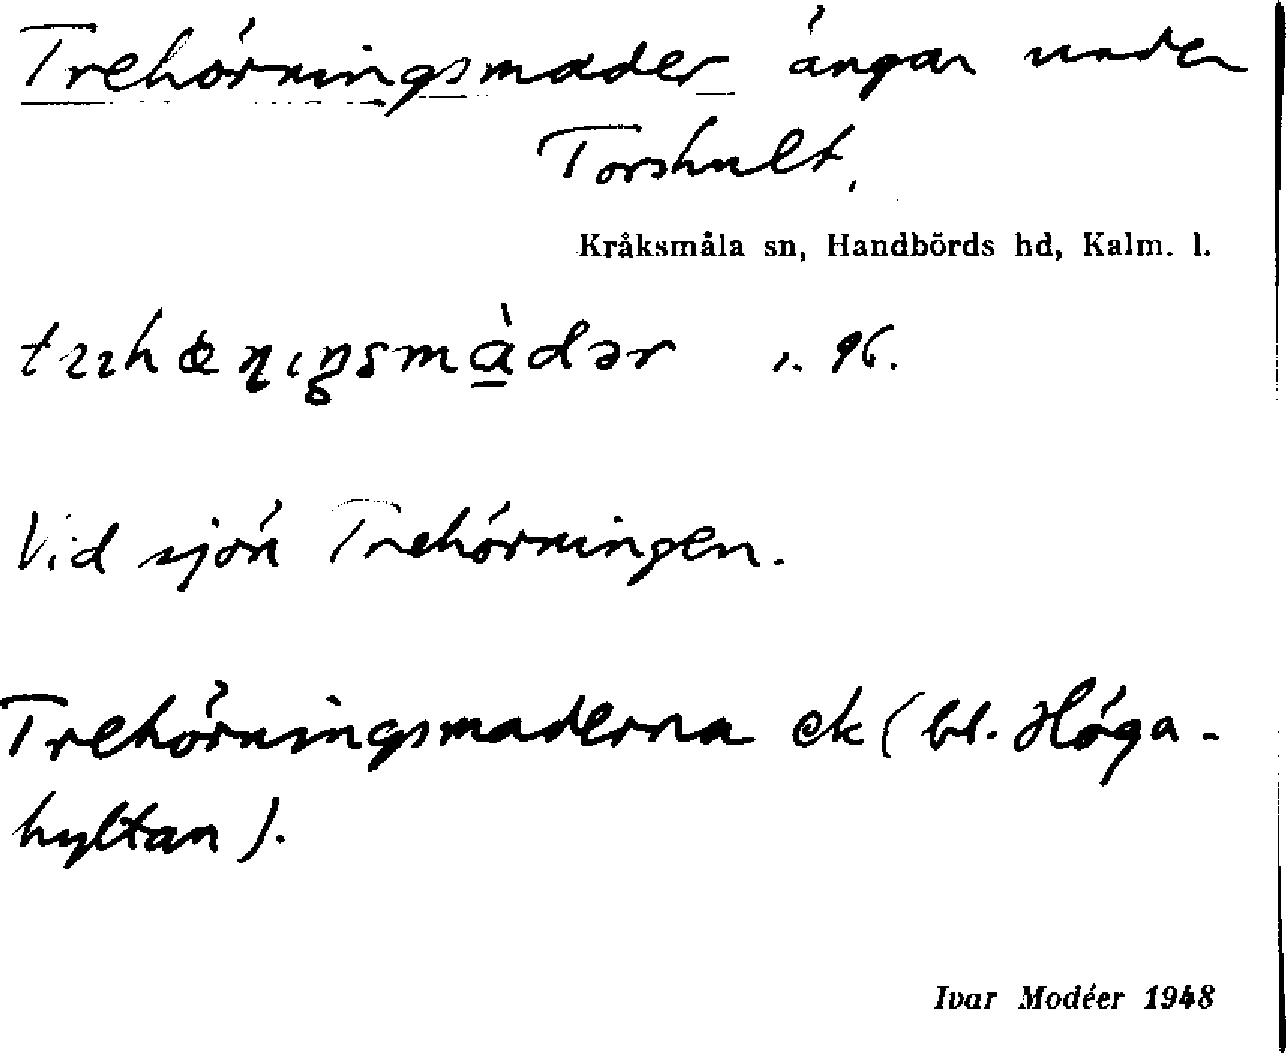 Trehörningsmader ängar under
Torshult.
Kråksmåla sn, Handbörds hd, Kalm. l.
Vid sjön Trehörningen.
Trehörningsmaderna ek (bl. Höga-
hyltan).
Ivar Modéer 1948